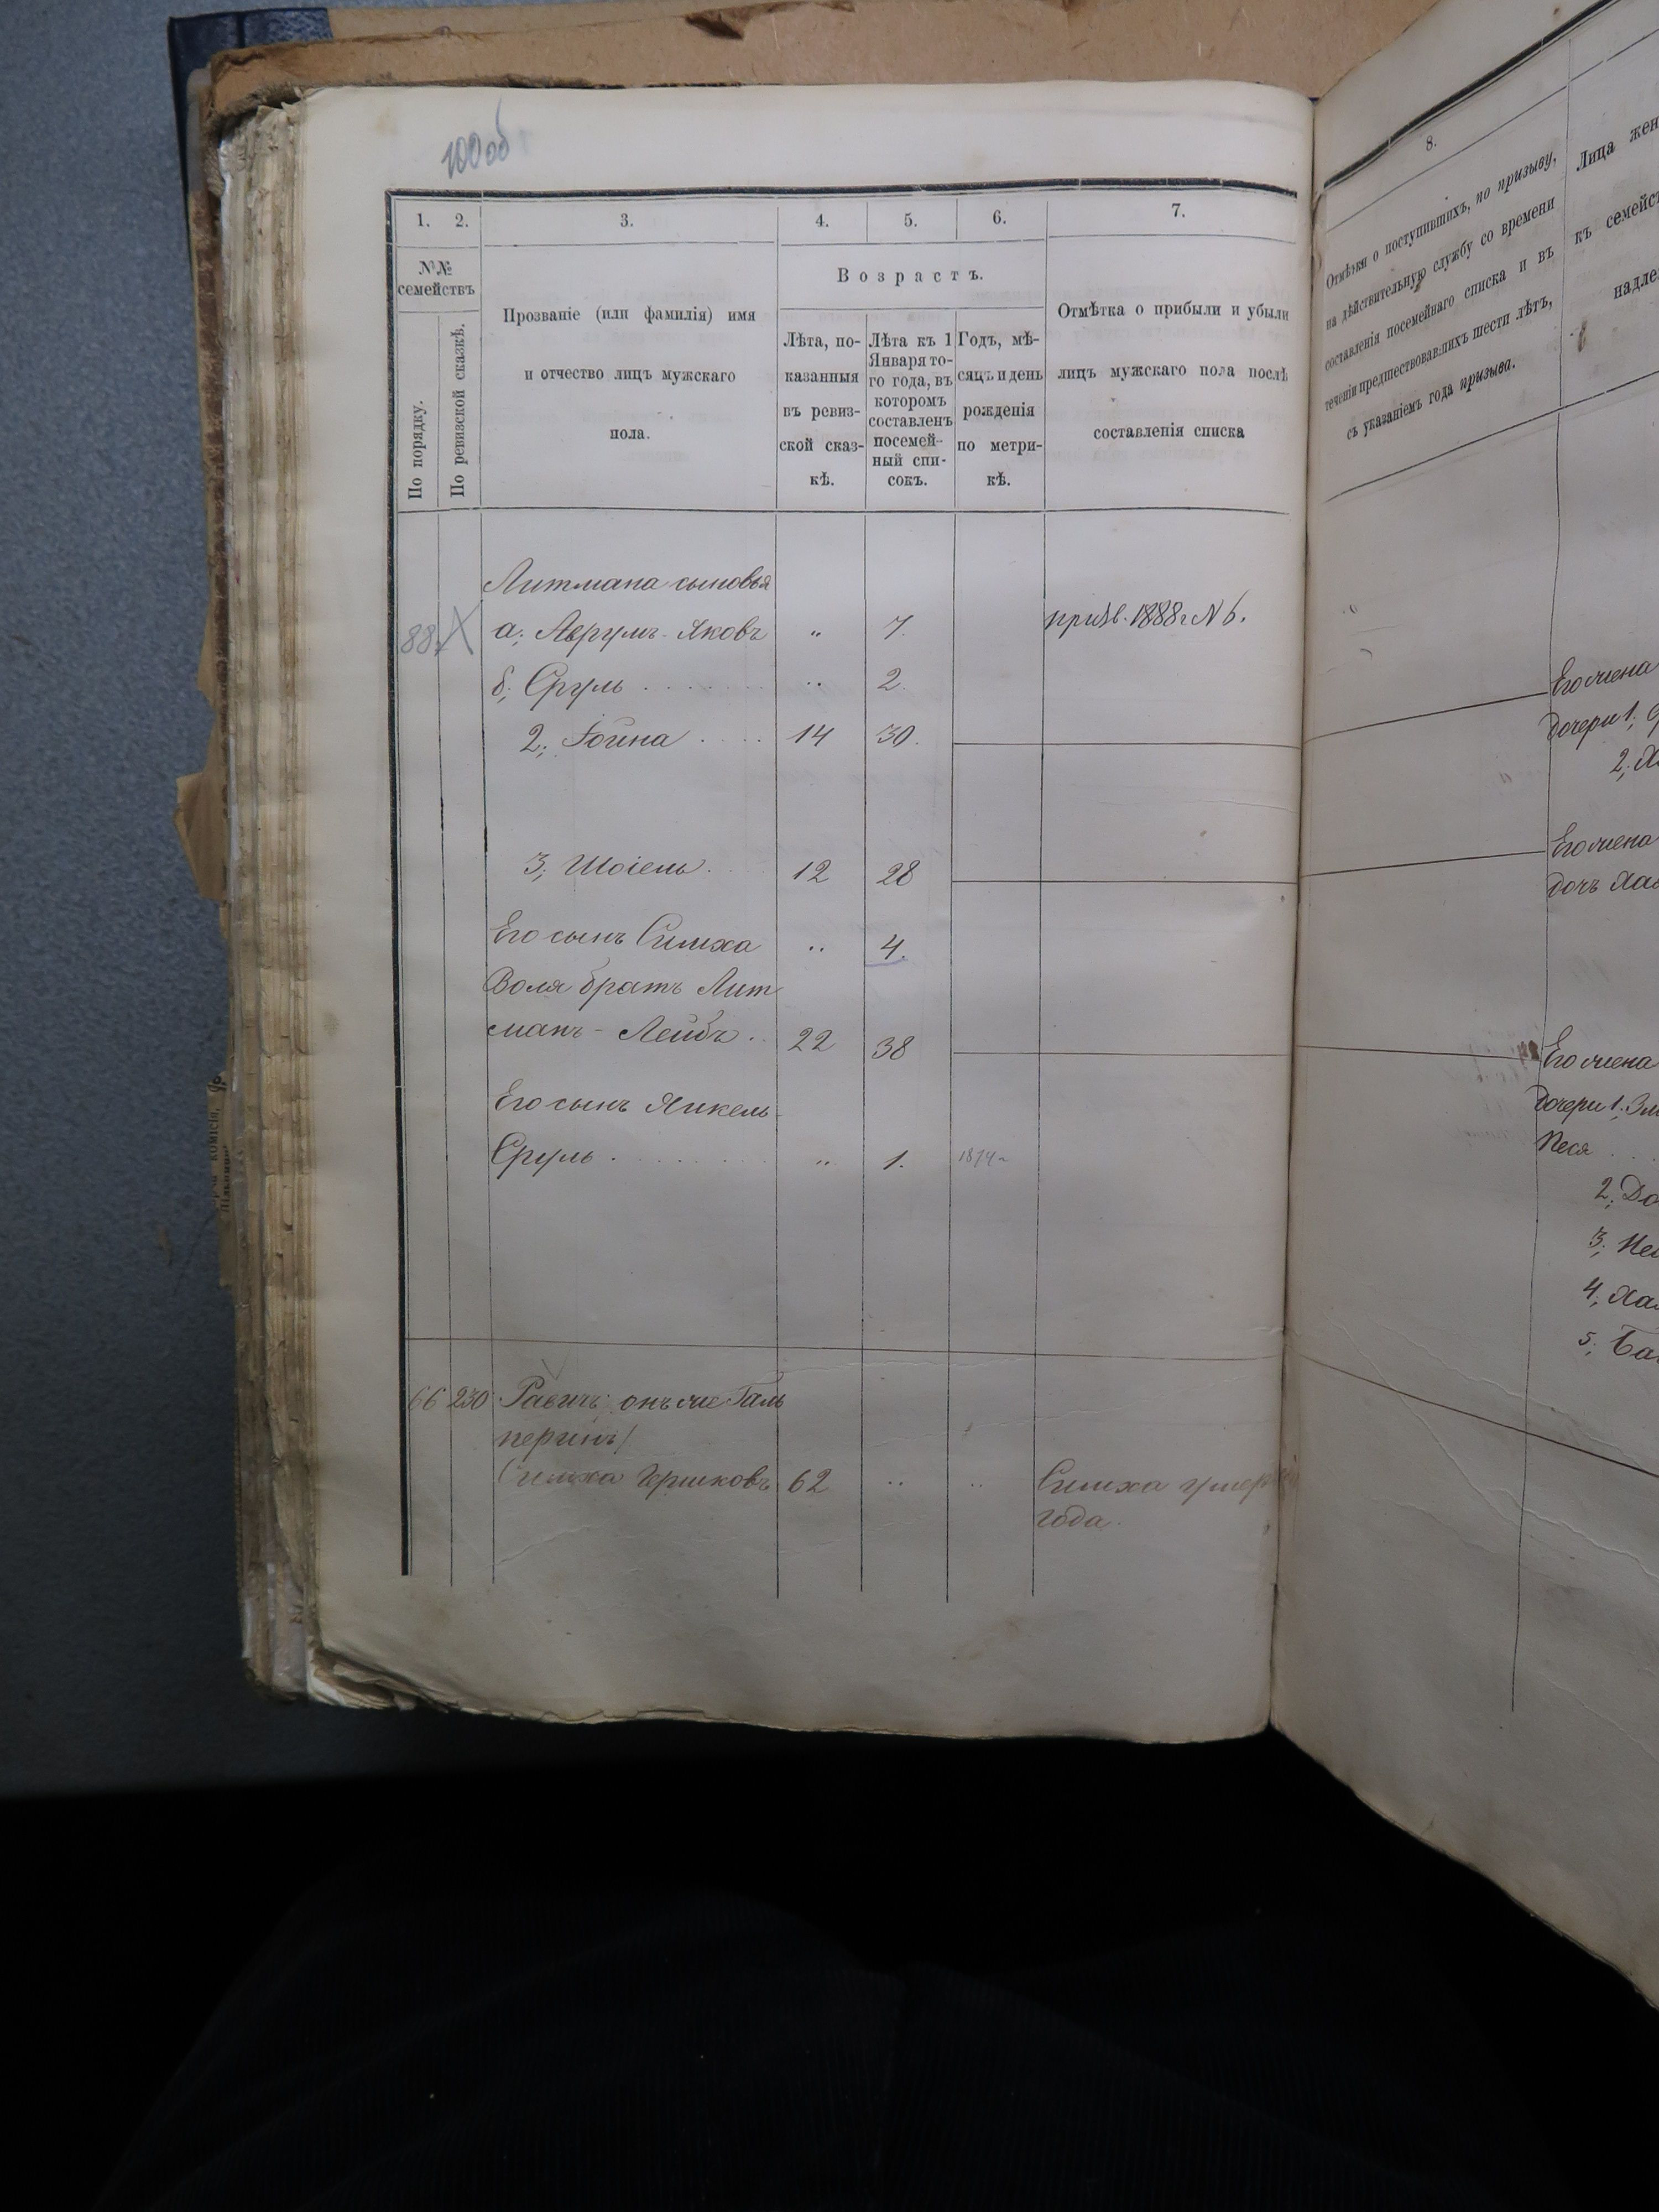 100об
1. 2. 3. 4. 5. 6. 7.
№№ семействъ
По порядку.
По ревизской сказкѣ.
Прозваніе (или фамилія) имя
и отчество лицъ мужскаго
пола.
Возрастъ.
Лѣта, по-
казанныя
въ ревиз-
ской сказ-
кѣ.
Лѣта къ 1
Января то-
го года, въ
которомъ
составленъ
посемей-
ный спи-
сокъ.
Годъ, мѣ-
сяцъ и день
рожденія
по метри-
кѣ.
Отмѣтка о прибыли и убыли
лицъ мужскаго пола послѣ
составленія списка
Литмана сыновья
88. а; Аврумъ-Яковъ " 7. призв. 1888 г N 6.
б; Сруль . . . . " 2.
2; Іойна . . . . 14 30.
3; Шоіель . . 12 28
Его сынъ Симха " 4.
Воля братъ Лит
манъ-Лейбъ . . 22 38
Его сынъ Янкель-
Сруль . . . . " 1. 1874 г
66 230 Равичъ; онъ же Галь
перинъ/
Симха Гершковъ 62 " " Симха умеръ
года.
8.
Отмѣтки о поступившихъ, по призыву,
на дѣйствительную службу со времени
составленія посемейнаго списка и въ
теченіи предшествовавшихъ шести лѣтъ,
съ указаніемъ года призыва.
Лица жен
къ семейст
надле
Его жена
дочери 1;
2; Ха
Его жена
дочь Хав
Его жена
дочери 1;
Песя
2; До
3;
4; Ха
5;